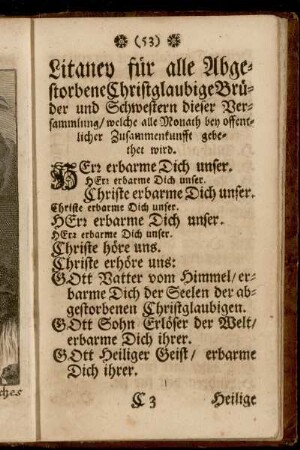 (53)
Litaney für alle Abge-
storbene Christglaubige Brü-
der und Schwestern dieser Ver-
sammlung/ welche alle Monath bey offent-
licher Zusammenkunfft gebe-
thet wird.
HErr erbarme Dich unser.
HErr erbarme Dich unser.
Christe erbarme Dich unser.
Christe erbarme Dich unser.
HErr erbarme Dich unser.
HErr erbarme Dich unser.
Christe höre uns.
Christe erhöre uns:
GOtt Vatter vom Himmel/ er-
barme Dich der Seelen der ab-
gestorbenen Christglaubigen.
GOtt Sohn Erlöser der Welt/
erbarme Dich ihrer.
GOtt Heiliger Geist/ erbarme
Dich ihrer.
C 3 Heilige